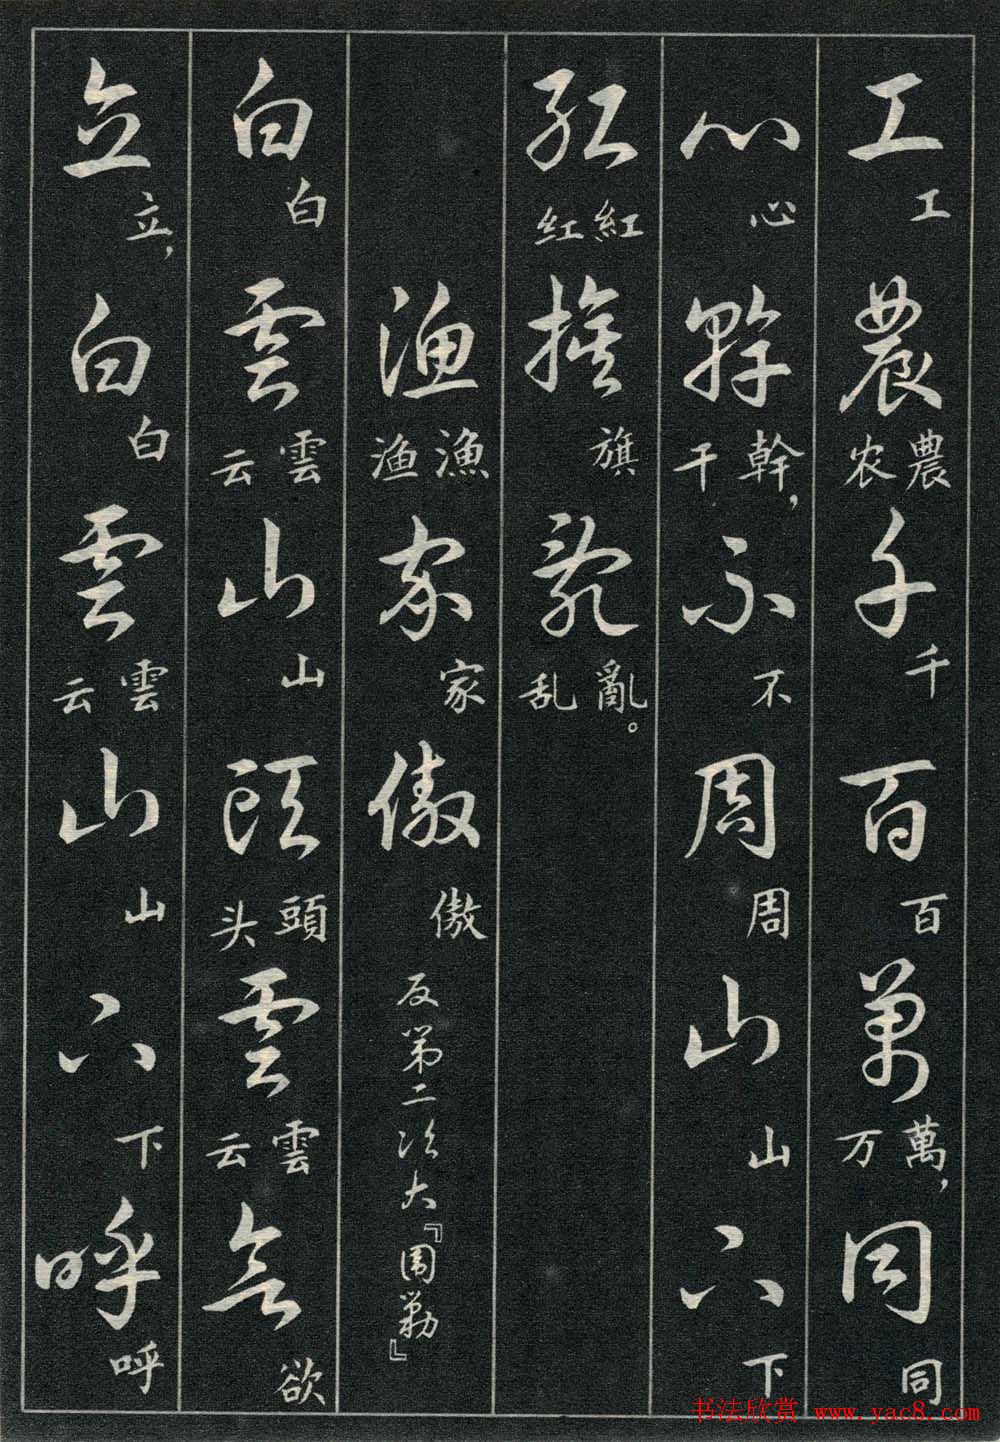 工 工 農 農 农 千 千 百 百 萬 萬， 万 同 同
心 心 幹 幹， 干 不 不 周 周 山 山 下 下
紅 紅 红 旗 旗 亂 亂。 乱
漁 漁 渔 家 家 傲 傲 反第二次大『围剿』
白 白 雲 雲 云 山 山 頭 頭 头 雲 雲 云 欲 欲
立 立， 白 白 雲 雲 云 山 山 下 下 呼 呼
书法欣赏 www.yac8.com